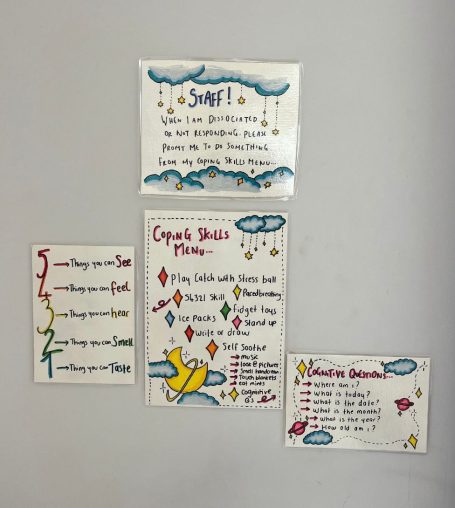 STAFF!
WHEN I AM DISSOCIATED
OR NOT RESPONDING. PLEASE
PROMT ME TO DO SOMETHING
FROM MY COPING SKILLS MENU...
COPING SKILLS
MENU...
Play Catch with Stress ball
54321 Skill
Paced breathing
Ice Packs
Fidget toys
Stand up
Write or draw
Self Soothe
→ music
→ look @ pictures
→ Smell
→ Touch blankets
→ eat mints
Cognitive
Q's
5 → Things you can See
4 → Things you can feel
3 → Things you can hear
2 → Things you can Smell
1 → Thing you can Taste
COGNITIVE QUESTIONS...
→ Where am i?
→ What is today?
→ What is the date?
→ What is the month?
→ What is the year?
→ How old am i?